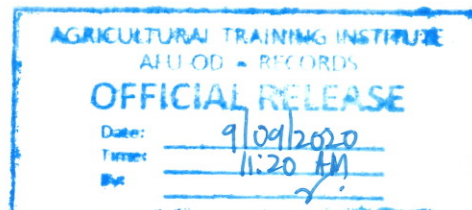 AGRICULTURAL TRAINING INSTITUTE
AFU-OD - RECORDS
OFFICIAL RELEASE
Date: 9/09/2020
Time: 11:20 AM
By: